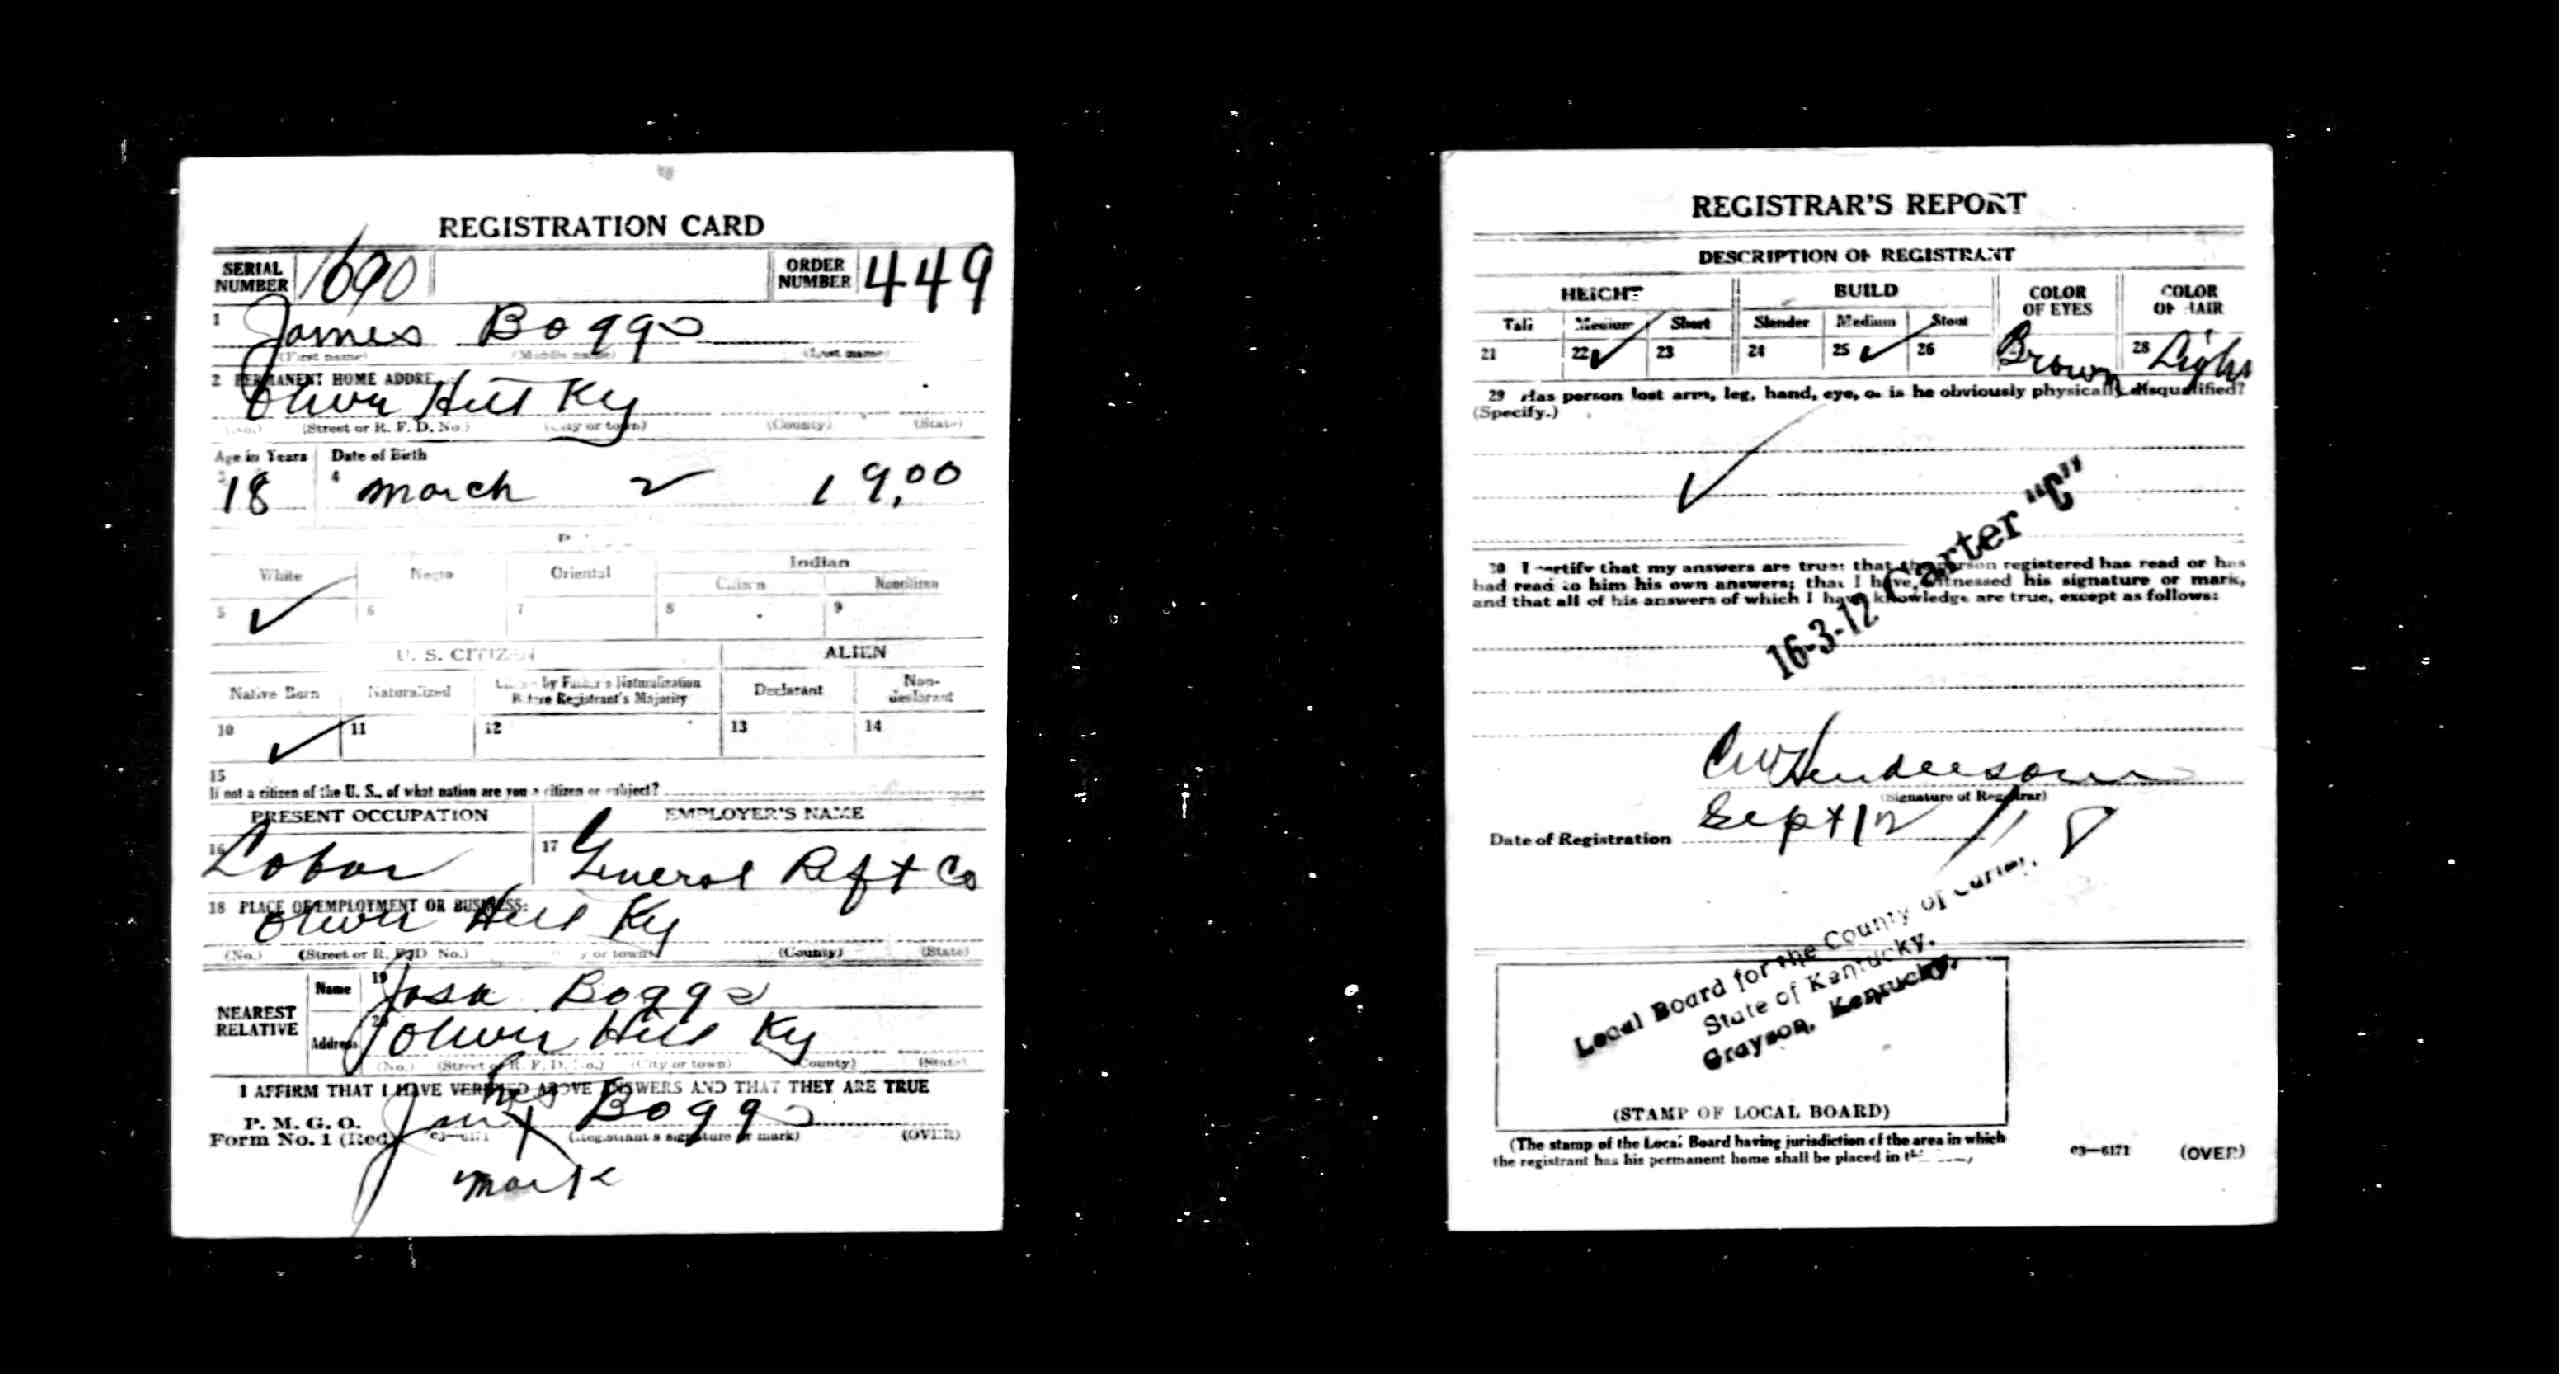 REGISTRATION CARD
SERIAL NUMBER 1690 ORDER NUMBER 449
1 James Boggs
(First name) (Middle name) (Last name)
2 PERMANENT HOME ADDRE
Olive Hill Ky
(Street or R. F. D. No.) (City or town) (County) (State)
Age in Years Date of Birth
3 18 4 March 2 1900
White Negro Oriental Indian
Citizen Noncitizen
5 ✓ 6 7 8 9
U. S. CITIZEN ALIEN
Native Born Naturalized by Father's Naturalization Before Registrant's Majority Declarant Non-declarant
10 ✓ 11 12 13 14
15
If not a citizen of the U. S., of what nation are you a citizen or subject?
PRESENT OCCUPATION EMPLOYER'S NAME
16 Labor 17 General Reft Co
18 PLACE OF EMPLOYMENT OR BUSINESS:
Olive Hill Ky
(No.) (Street or R. F. D. No.) (City or town) (County) (State)
NEAREST RELATIVE
Name 19 Boggs
Address 20 Olive Hill Ky
(No.) (Street or R. F. D. No.) (City or town) (County) (State)
I AFFIRM THAT I HAVE VERIFIED ABOVE ANSWERS AND THAT THEY ARE TRUE
his
P. M. G. O. Form No. 1 (Red) 03—6171 X Boggs
(Registrant's signature or mark) (OVER)
mark
REGISTRAR'S REPORT
DESCRIPTION OF REGISTRANT
HEIGHT BUILD COLOR OF EYES COLOR OF HAIR
Tall Medium Short Slender Medium Stout
21 22 ✓ 23 24 25 ✓ 26 Brown 28 Light
29 Has person lost arm, leg, hand, eye, or is he obviously physically disqualified?
(Specify.)
✓
16-3-12 Carter "C"
30 I certify that my answers are true; that the person registered has read or has
had read to him his own answers; that I have witnessed his signature or mark,
and that all of his answers of which I have knowledge are true, except as follows:
C W Henderson
(Signature of Registrar)
Date of Registration Sept 12 / 18
Local Board for the County of Carter,
State of Kentucky,
Grayson, Kentucky,
(STAMP OF LOCAL BOARD)
(The stamp of the Local Board having jurisdiction of the area in which
the registrant has his permanent home shall be placed in
03—6171 (OVER)